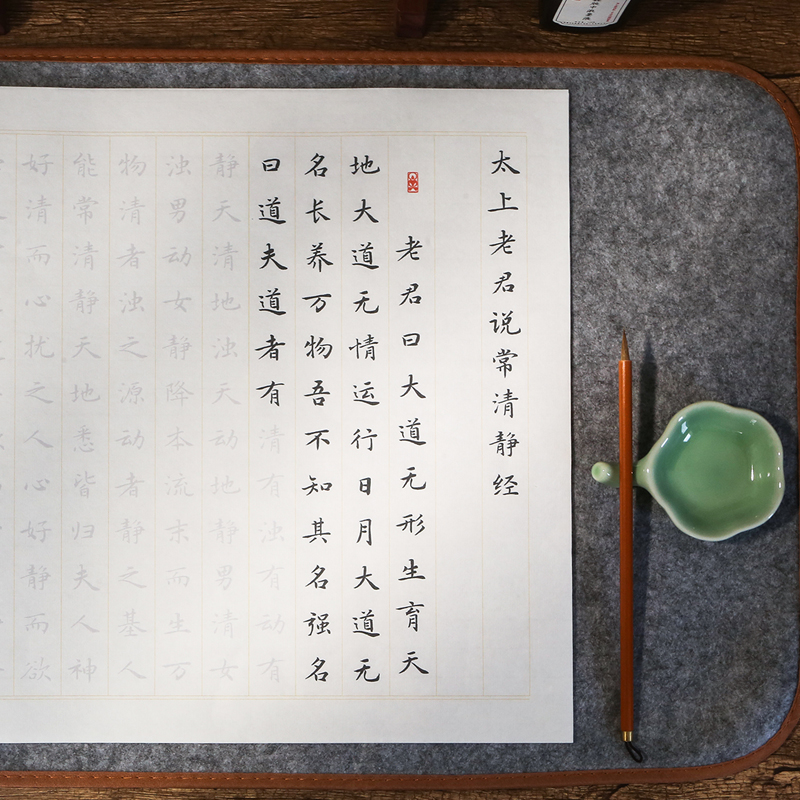 太上老君说常清静经
老君曰大道无形生育天
地大道无情运行日月大道无
名长养万物吾不知其名强名
曰道夫道者有清有浊有动有
静天清地浊天动地静男清女
浊男动女静降本流末而生万
物清者浊之源动者静之基人
能常清静天地悉皆归夫人神
好清而心扰之人心好静而欲